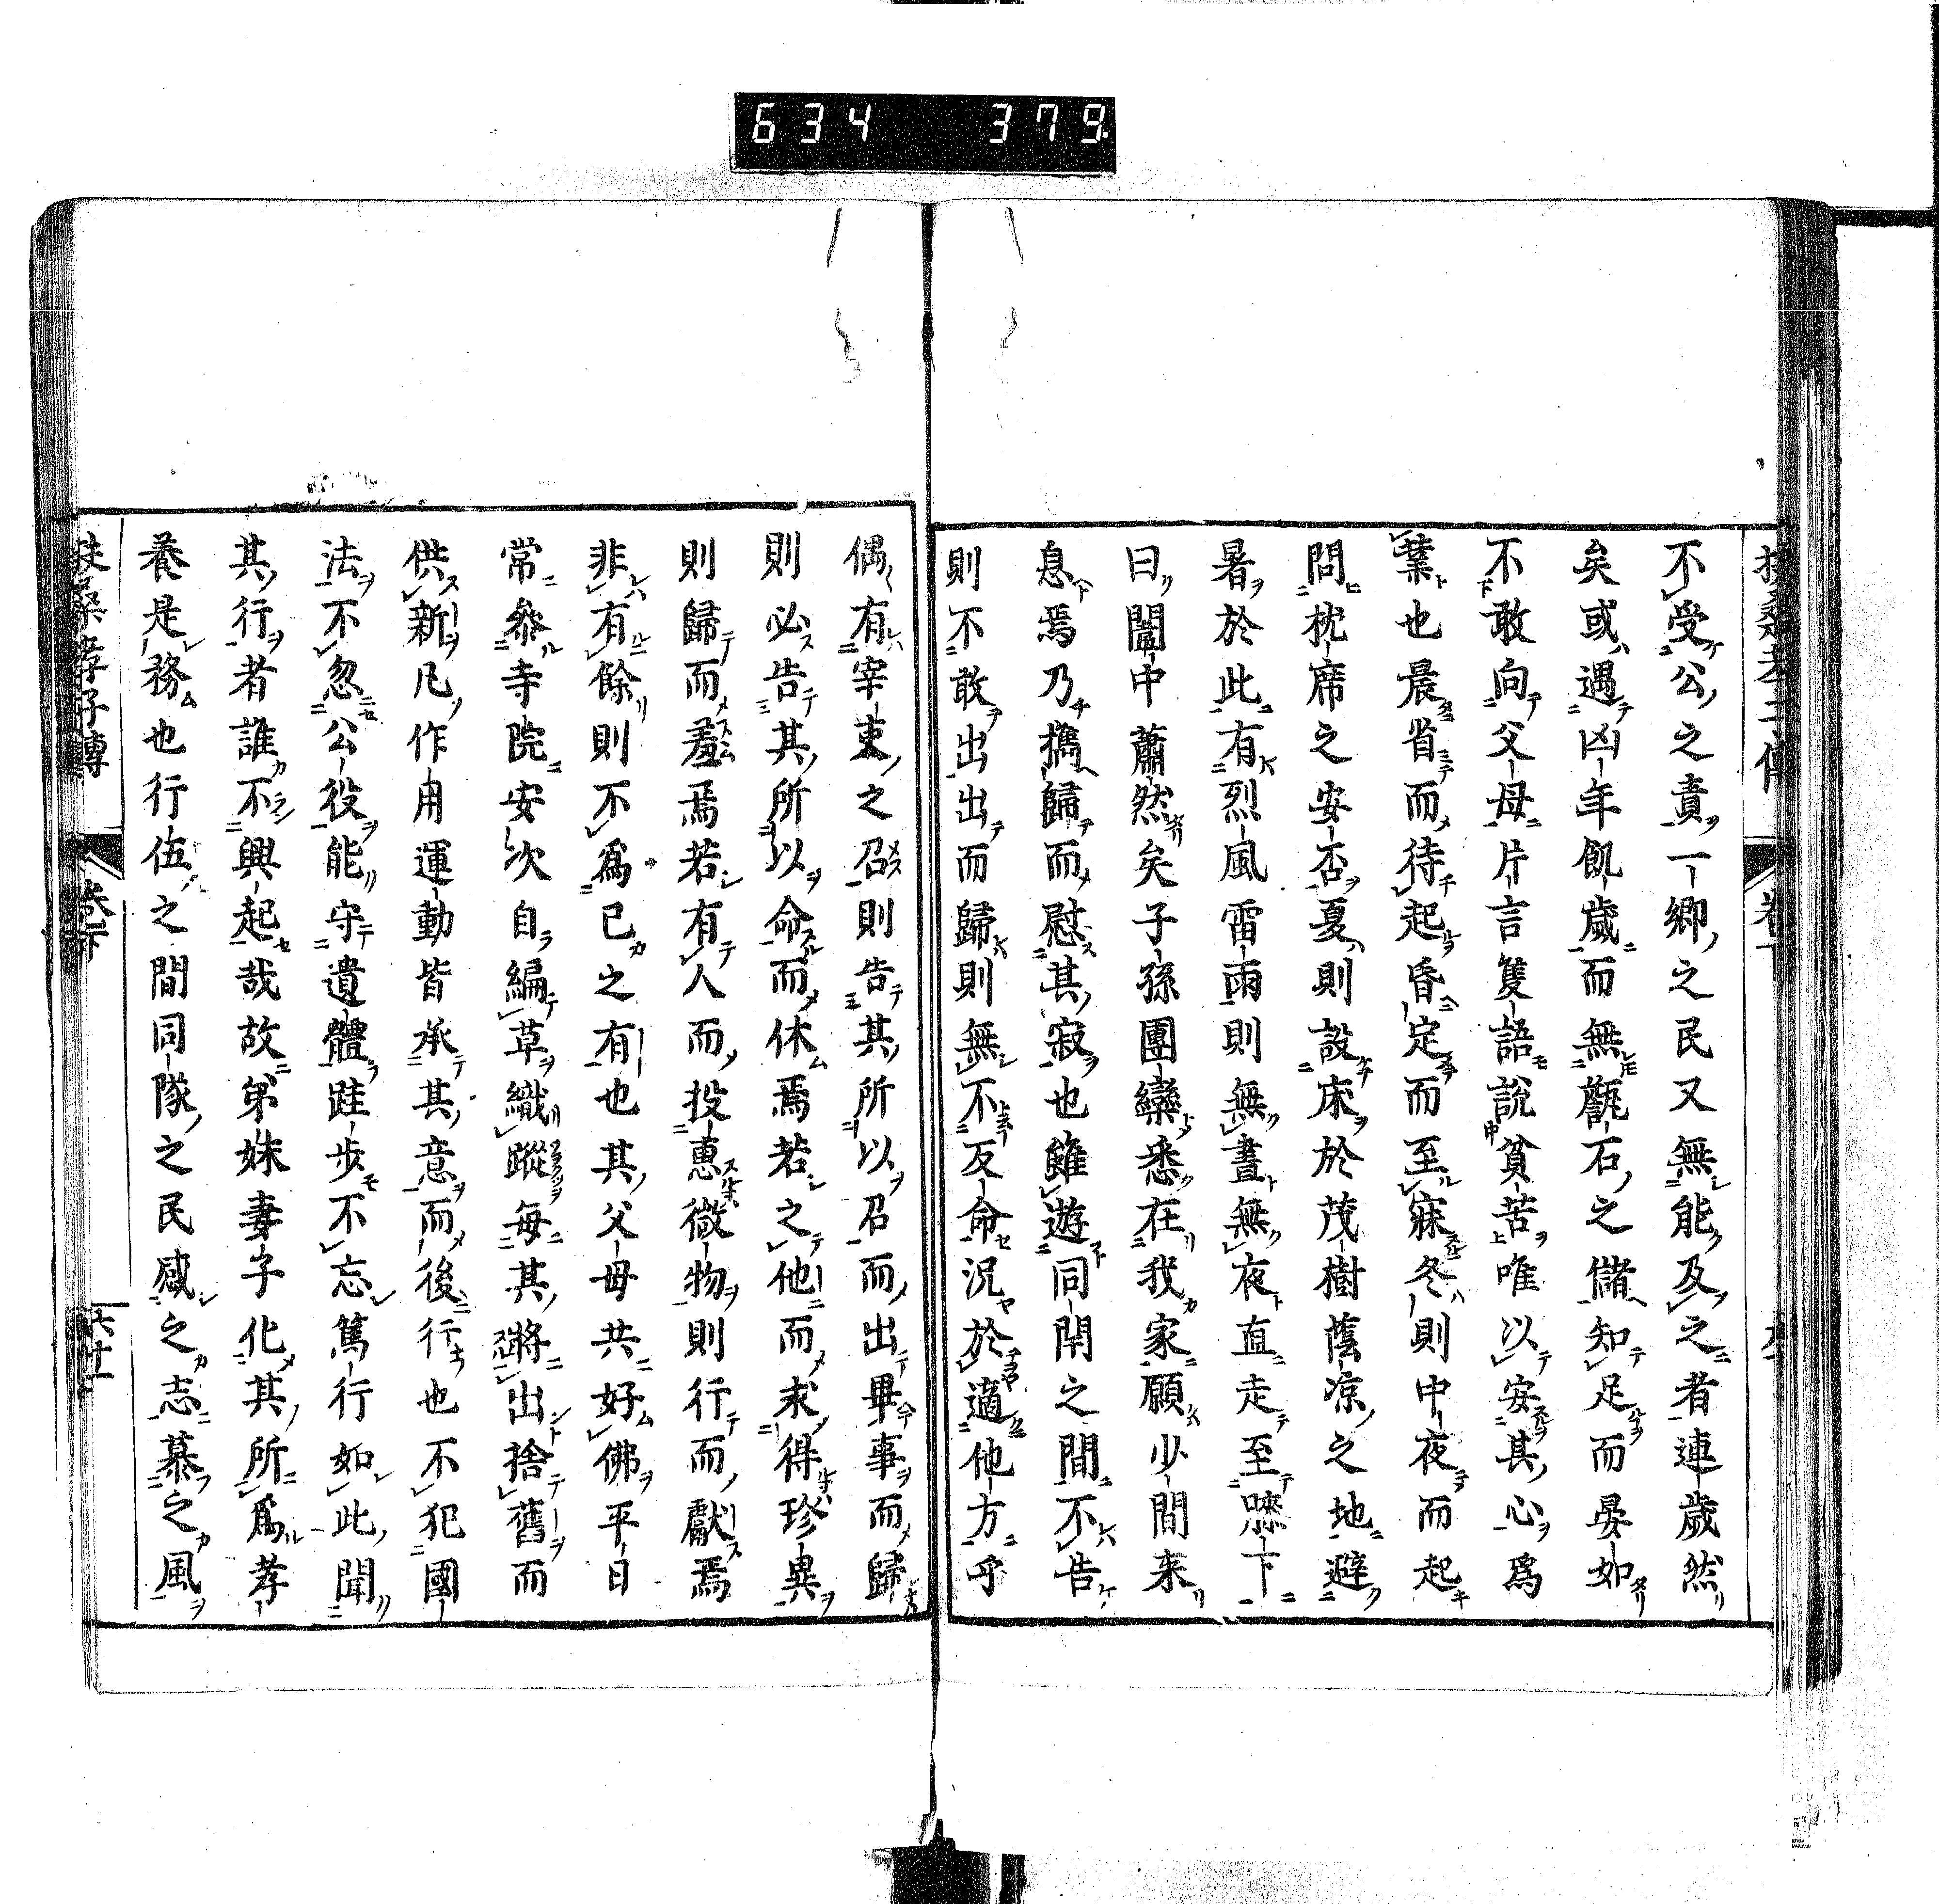 634 379
不受公之責一鄉之民又無能及之者連歲然
矣或遇凶年飢歲而無甔石之儲知足而晏如
不敢向父母片言隻語說貧苦唯以安其心爲
業也晨省而待起昏定而至寐冬則中夜而起
問枕席之安否夏則設床於茂樹蔭凉之地避
暑於此有烈風雷雨則無晝無夜直走至膝下
曰闔中蕭然矣子孫團欒悉在我家願少間来
息焉乃攜歸而慰其寂也雖遊同閈之間不告
則不敢出出而歸則無不反命況於適他方乎
偶有宰吏之召則告其所以召而出畢事而歸
則必告其所以命而休焉若之他而求得珍異
則歸而羞焉若有人而投惠微物則行而獻焉
非有餘則不爲己之有也其父母共好佛平日
常參寺院安次自編草織蹤每其將出捨舊而
供新凡作用運動皆承其意而後行也不犯國
法不忽公役能守遺體跬步不忘篤行如此聞
其行者誰不興起哉故弟妹妻子化其所爲孝
養是務也行伍之間同隊之民感之志慕之風
扶桑孝子傳 卷下 六十一